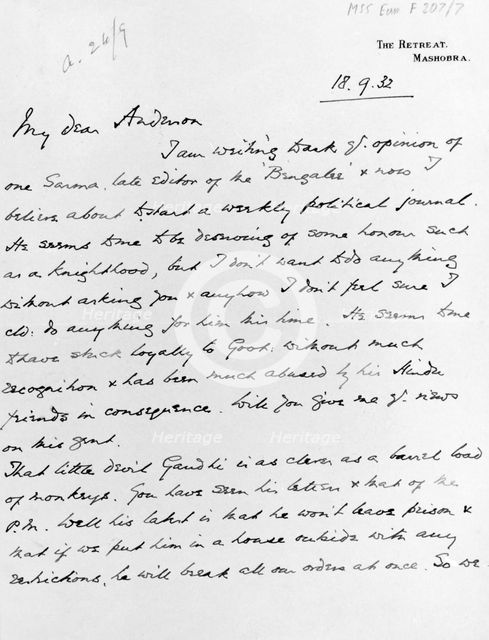 MSS Eur F 207/7
a. 24/9
THE RETREAT.
MASHOBRA.
18.9.32
My dear Anderson
I am writing to ask yr. opinion of
one Sarma, late Editor of the 'Bengalee' & now I
believe about to start a weekly political journal.
He seems to me to be deserving of some honour such
as a Knighthood, but I don't want to do anything
without asking you & anyhow I don't feel sure I
cld: do anything for him this time. He seems to me
to have stuck loyally to Govt: without much
recognition & has been much abused by his Hindu
friends in consequence. Will you give me yr. views
on this gent.
That little devil Gandhi is as clever as a barrel load
of monkeys. You have seen his letters & that of the
P.M. Well his latest is that he won't leave prison &
that if we put him in a house outside with any
restrictions, he will break all our orders at once. So we
Heritage
Heritage
Heritage
Heritage